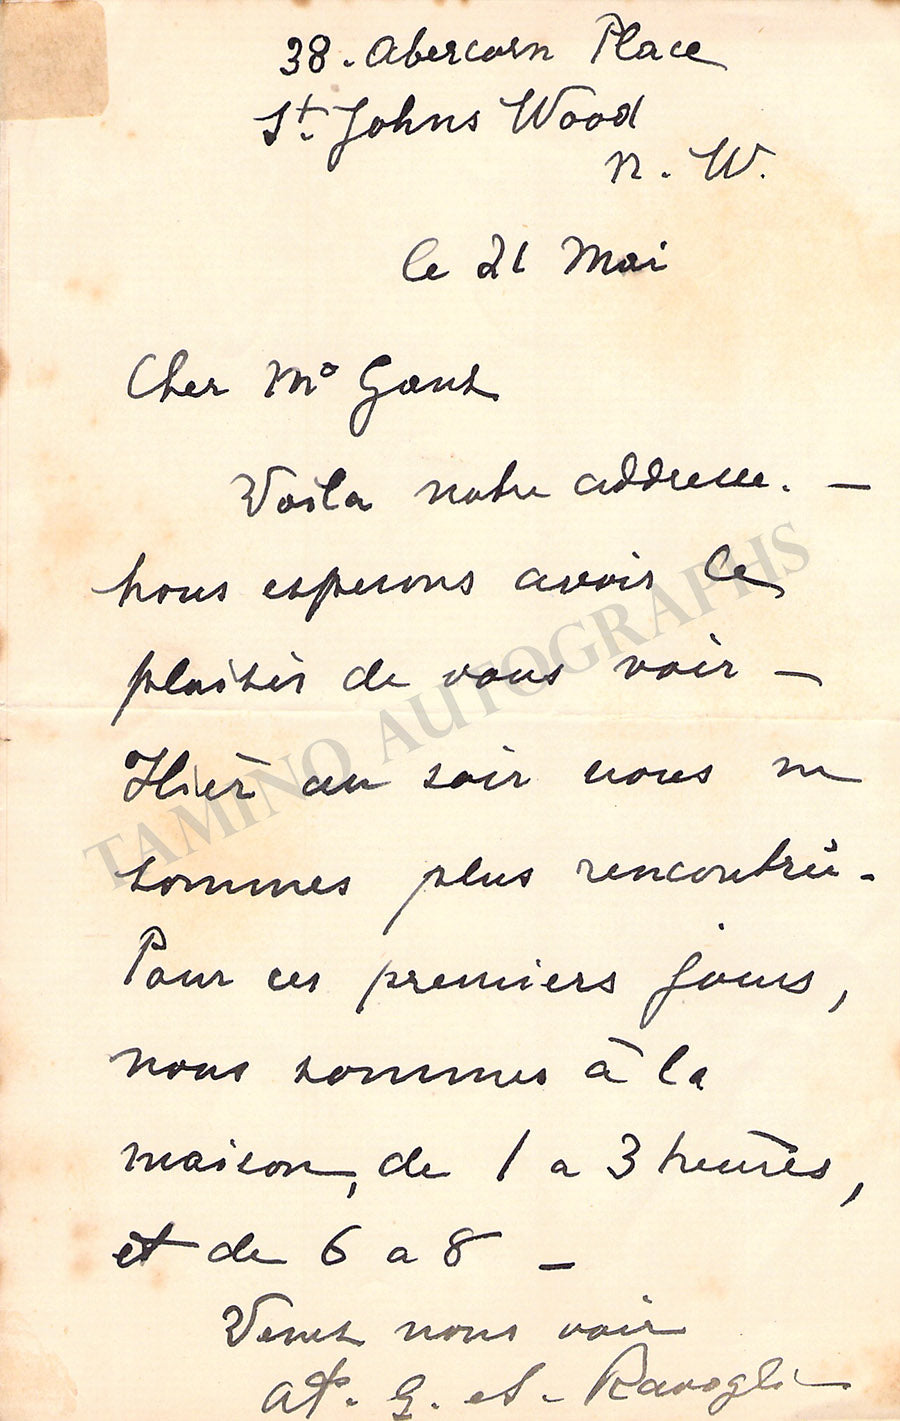 38. Abercorn Place
St. Johns Wood
N. W.
le 21 Mai
Cher Mo
Voila notre addresse. —
nous esperons avoir le
plaisir de vous voir —
Hier au soir nous ne
sommes plus rencontrés.
Pour ces premiers jours,
nous sommes à la
maison, de 1 a 3 heures,
et de 6 a 8 —
Venez nous voir
G. et Ravogli
TAMINO AUTOGRAPHS